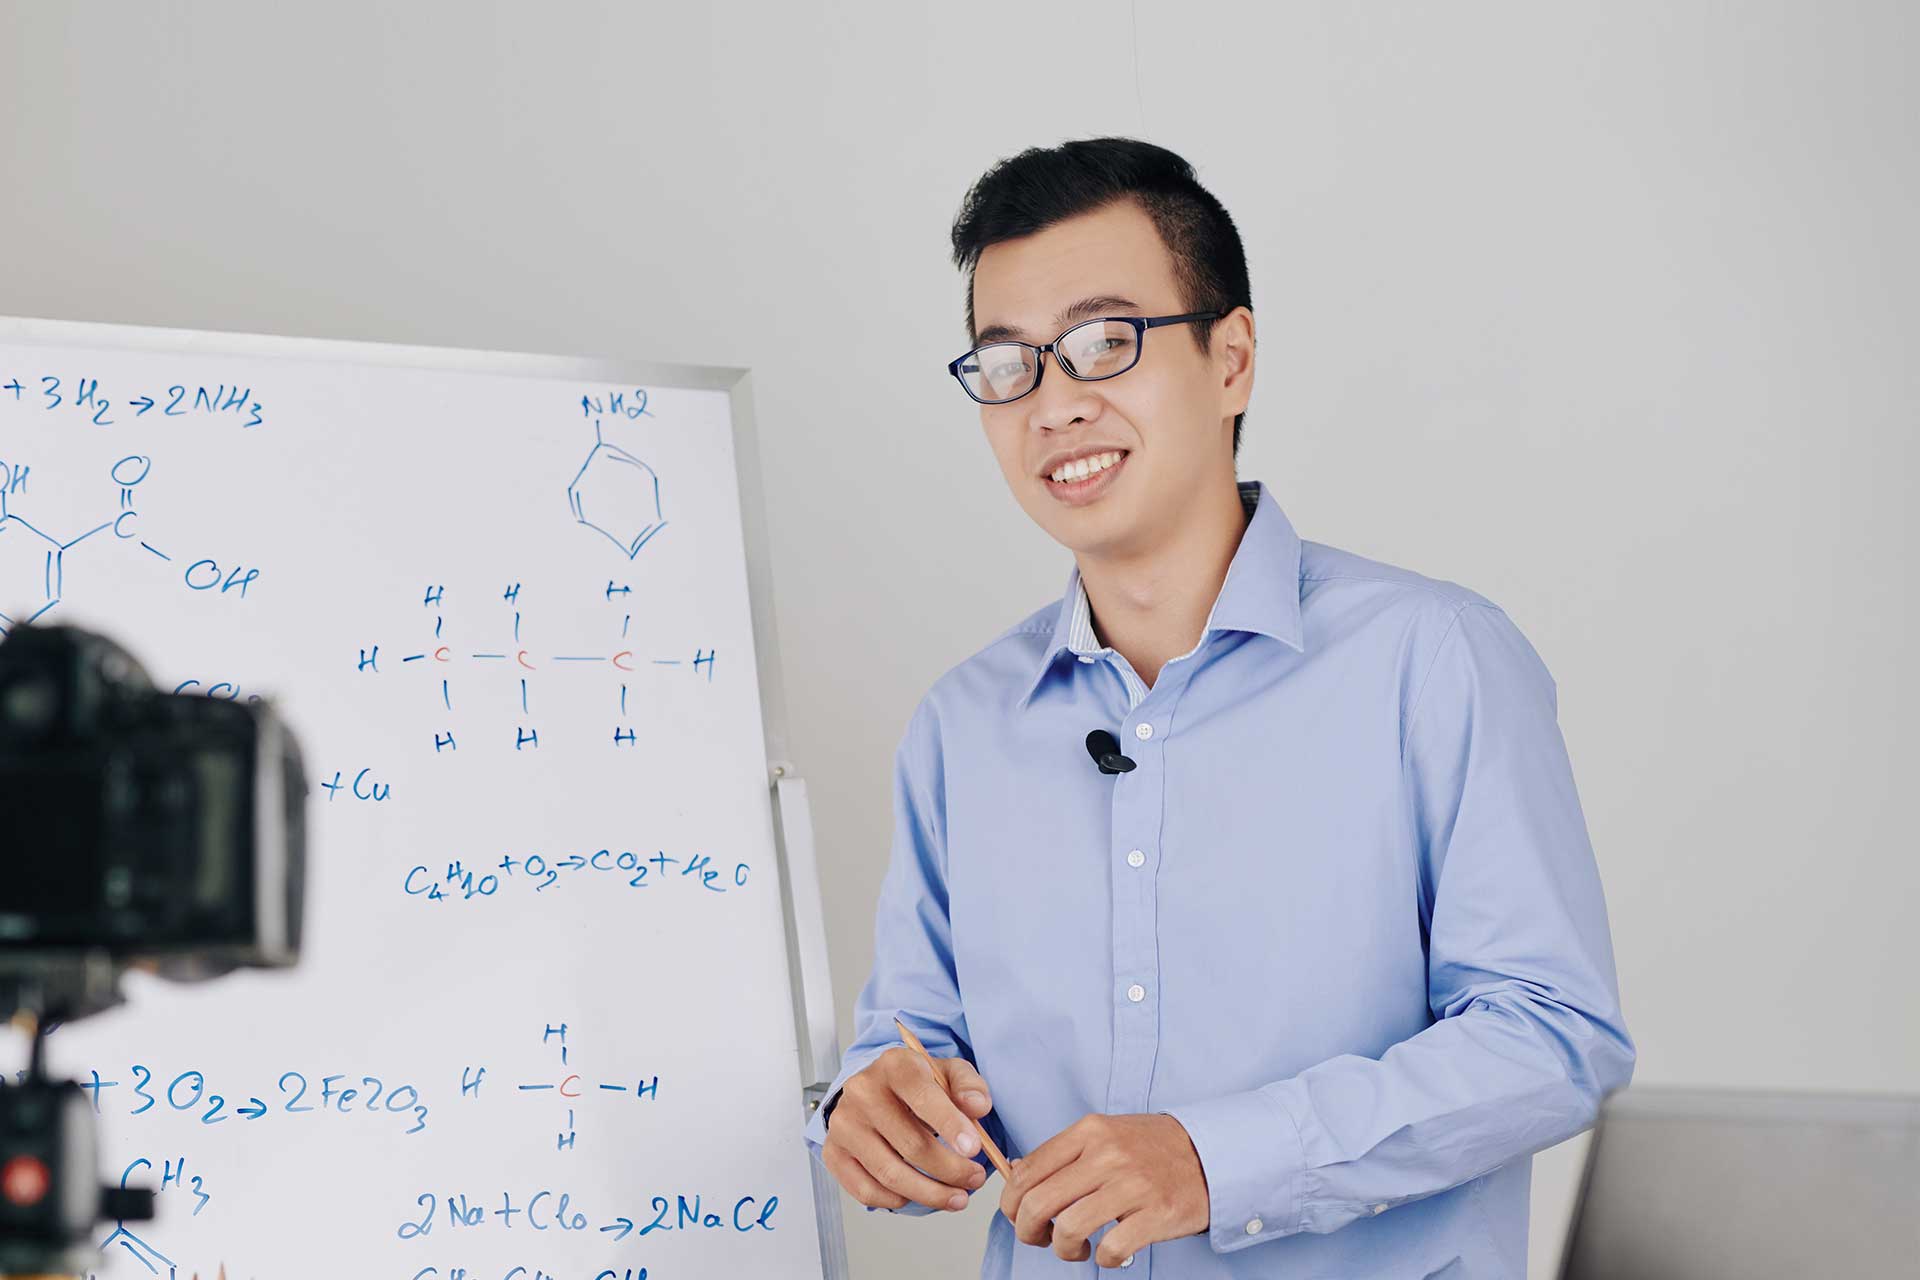 + 3H₂ → 2NH₃
NH2
OH
O
C
OH
H H H
H C C C H
H H H
+ Cu
C₄H10 + O₂ → CO₂ + H₂O
H
+ 3O₂ → 2Fe2O₃
H C H
H
CH₃
2Na + Clo → 2NaCl